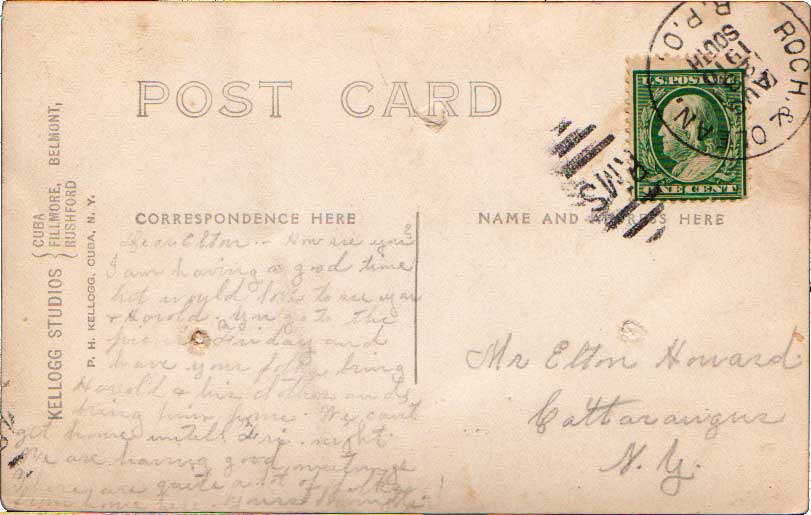 POST CARD
KELLOGG STUDIOS { CUBA
FILLMORE, BELMONT,
RUSHFORD
P. H. KELLOGG, CUBA, N. Y.
CORRESPONDENCE HERE
Dear Elton - How are you?
I am having a good time
but would love to see you
& Harold. You go to the
Friday and
have your folks bring
Harold & his clothes and
bring him home. We can't
get home until Fri. night.
We are having good meetings
There are quite a lot of
NAME AND ADDRESS HERE
Mr Elton Howard
Cattaraugus
N. Y.
U.S. POSTAGE
ONE CENT
ROCH. & OLEAN.
R.P.O.
AUG
1910
SOUTH
RMS